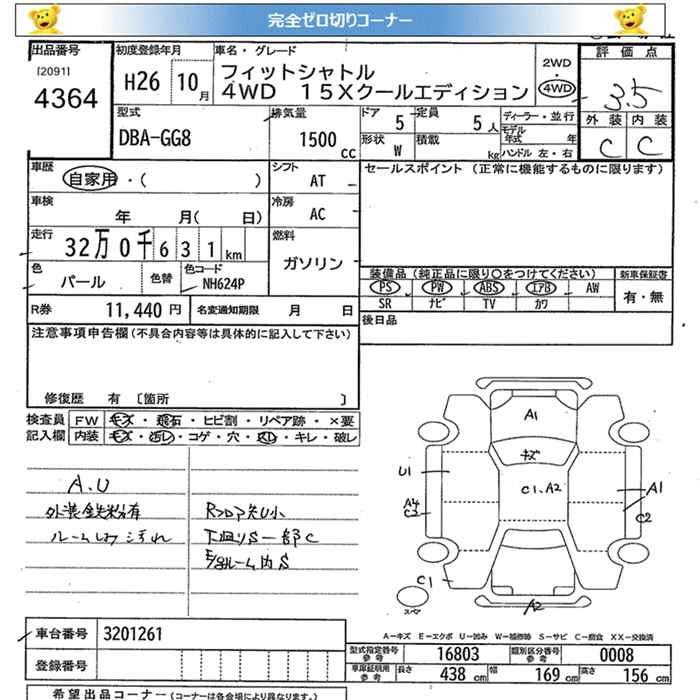 完全ゼロ切りコーナー
出品番号 初度登録年月 車名・グレード 評価点
[2091] 4364 H26 10月 フィットシャトル 2WD・4WD 3.5
4WD 15Xクールエディション
型式 排気量 ドア 5 定員 5人 ディーラー・並行 外装 内装
DBA-GG8 1500cc 形状 W 積載 kg モデル年式 年 C C
ハンドル 左・右
車歴 自家用・( ) シフト AT セールスポイント (正常に機能するものに限ります)
車検 年 月( 日) 冷房 AC
走行 32万0千631km 燃料 ガソリン
色 パール 色替 色コード NH624P 装備品(純正品に限り○をつけてください) 新車保証書
PS PW ABS エアB AW 有・無
SR ナビ TV カワ
R券 11,440円 名変通知期限 月 日 後日品
注意事項申告欄(不具合内容等は具体的に記入して下さい)
修復歴 有 [箇所 ]
検査員 FW キズ・飛石・ヒビ割・リペア跡・×要
記入欄 内装 キズ・汚れ・コゲ・穴・スレ・キレ・破レ
A.U
外装鉄粉有 Rフロア突小
下廻りS一部C
E/gルーム内S
A1
キズ
U1 C1.A2 A1
A4 C2
C1
スペア A2
A−キズ E−エクボ U−凹み W−補修跡 S−サビ C−腐食 XX−交換済
車台番号 3201261 型式指定番号 参考 16803 類別区分番号 参考 0008
登録番号 車庫証明用 参考 長さ 438cm 幅 169cm 高さ 156cm
希望出品コーナー(コーナーは各会場により異なります。)